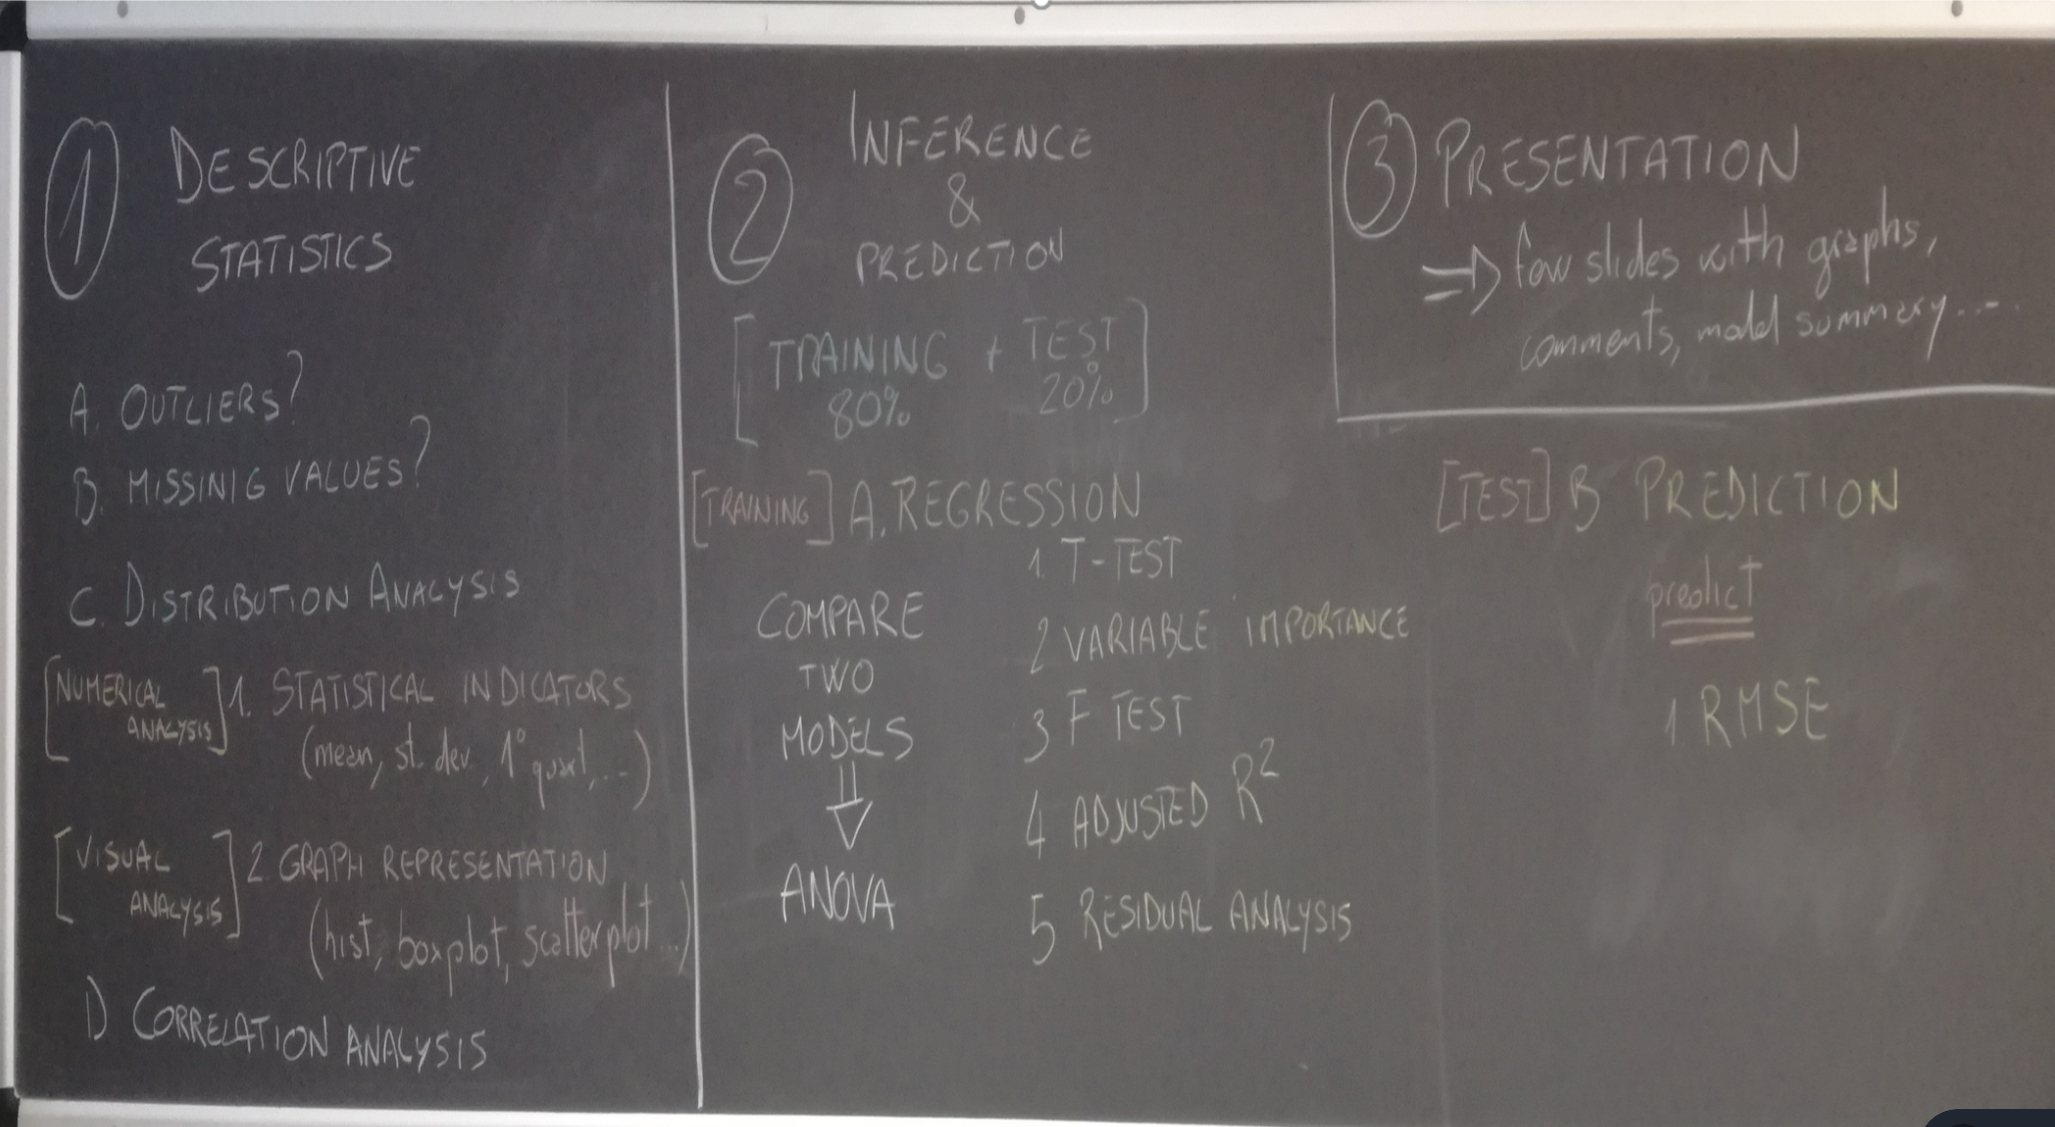 1 DESCRIPTIVE
STATISTICS
A. OUTLIERS?
B. MISSINIG VALUES?
C. DISTRIBUTION ANALYSIS
[NUMERICAL ANALYSIS] 1. STATISTICAL INDICATORS
(mean, st. dev., 1° quart, ...)
[VISUAL ANALYSIS] 2 GRAPH REPRESENTATION
(hist, boxplot, scatterplot...)
D CORRELATION ANALYSIS
2 INFERENCE
&
PREDICTION
[TRAINING + TEST
80% 20%]
[TRAINING] A. REGRESSION
1. T-TEST
2 VARIABLE IMPORTANCE
3 F TEST
4 ADJUSTED R²
5 RESIDUAL ANALYSIS
COMPARE
TWO
MODELS
⇓
ANOVA
[TEST] B PREDICTION
predict
1. RMSE
3 PRESENTATION
⇒ few slides with graphs,
comments, model summary....